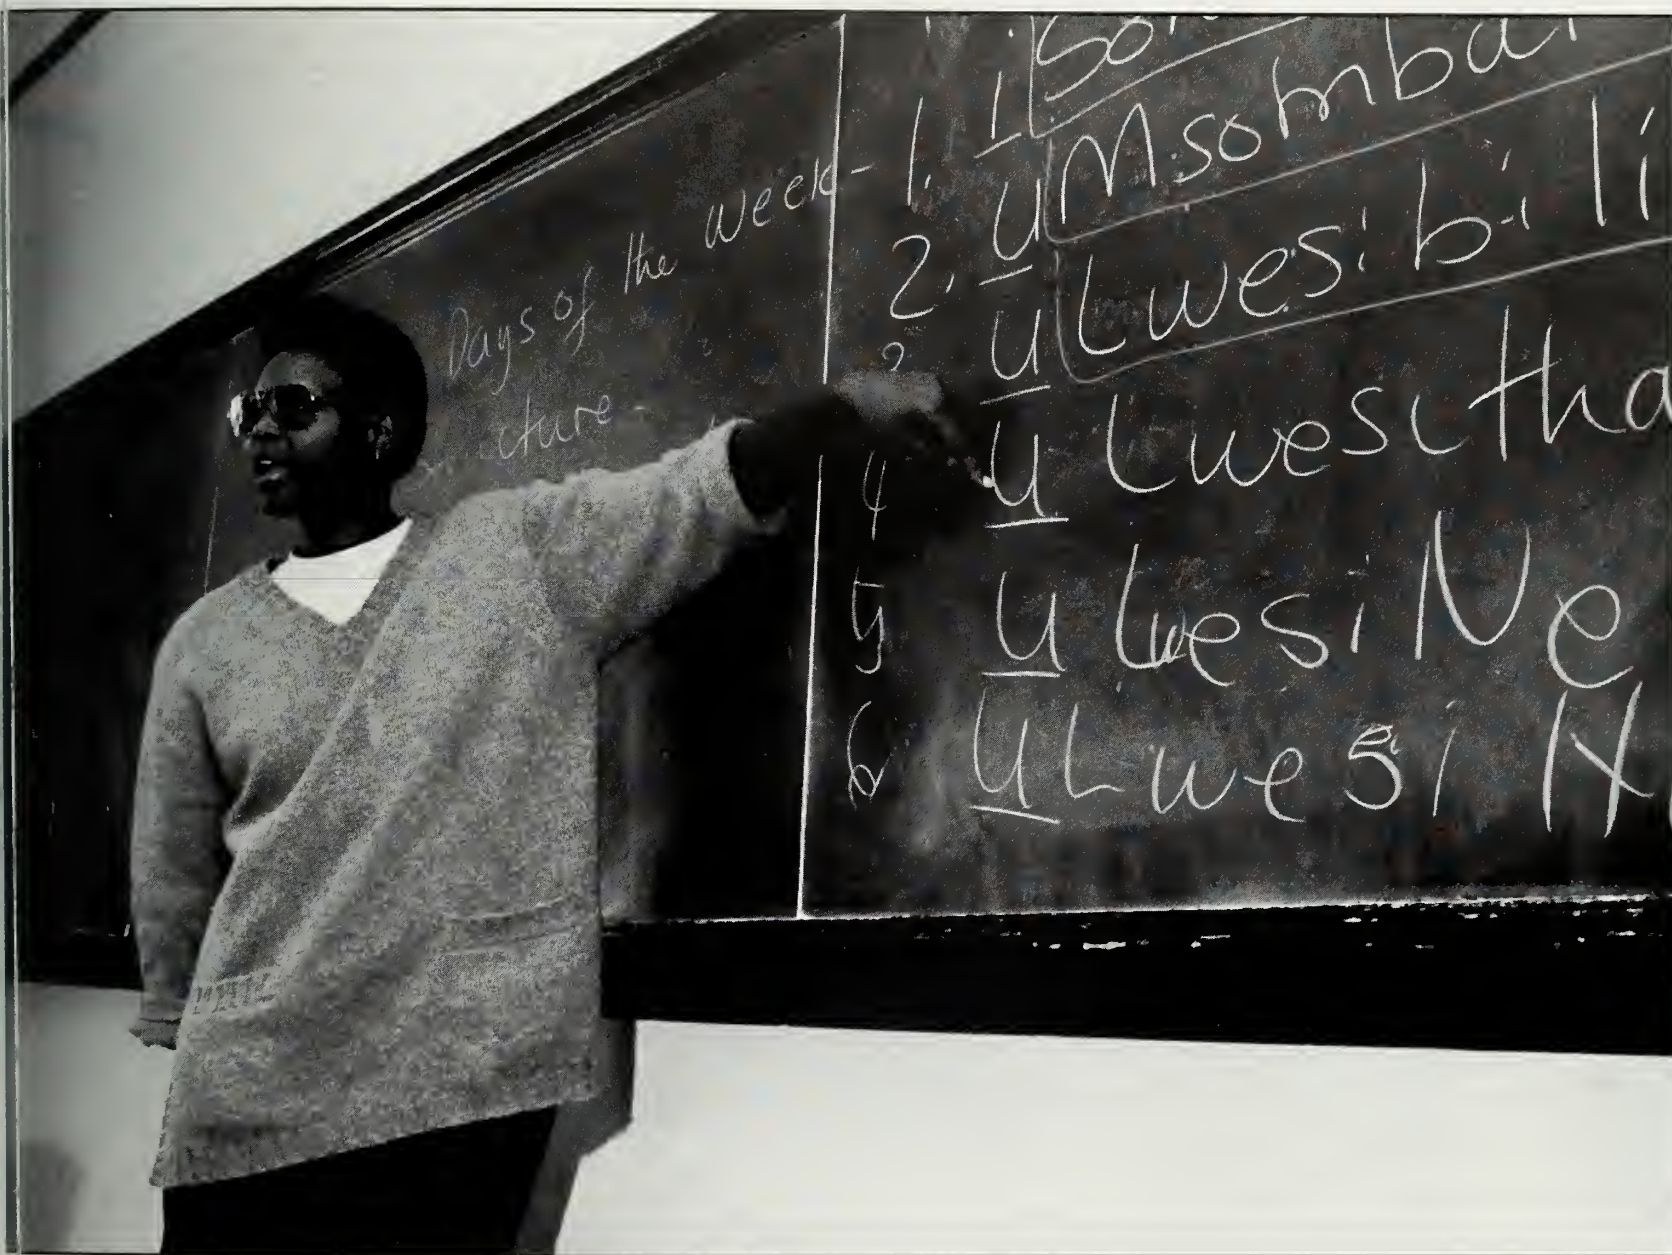 Days of the week-
cture-
1. i
2. uMsombu
uLwesibili
4 uLwesitha
5 uLwesiNe
6 uLwesi